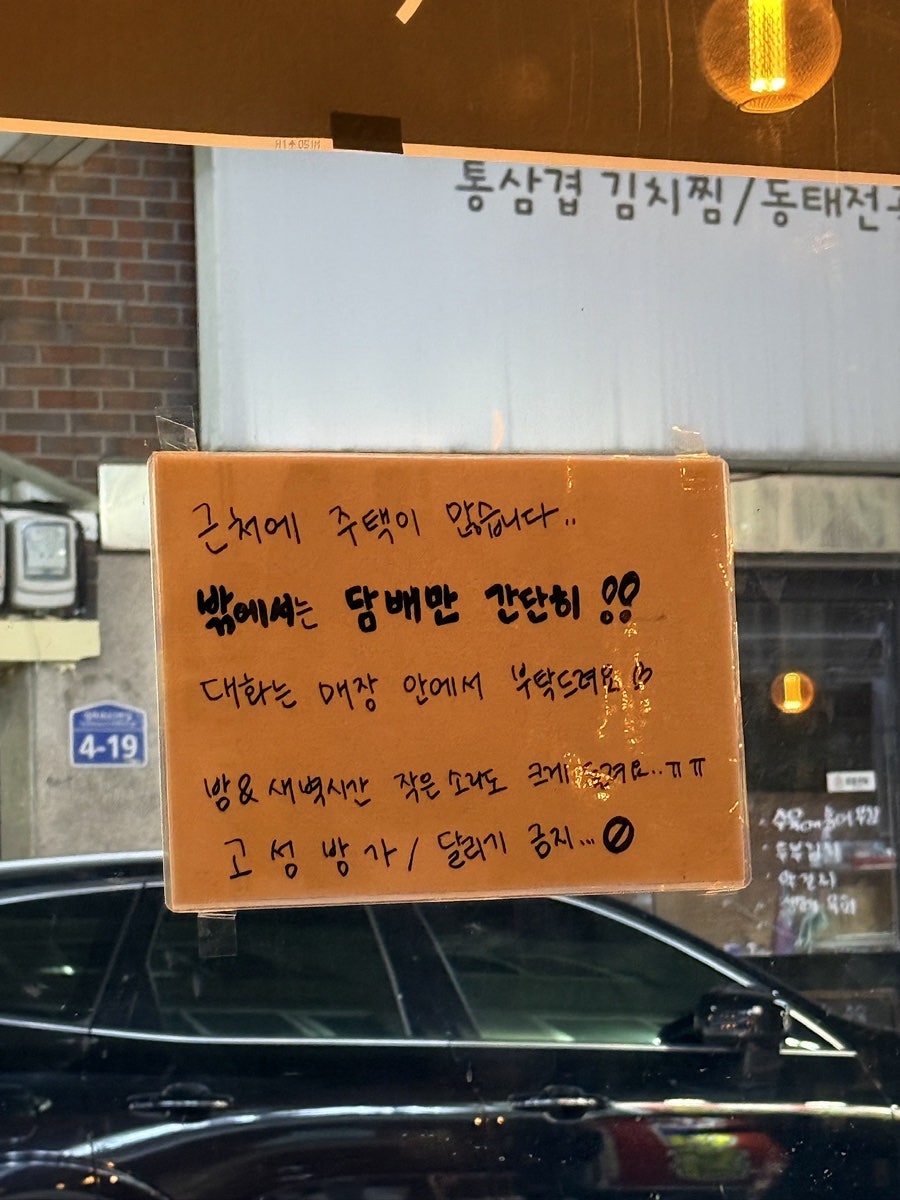 통삼겹 김치찜/동태전
근처에 주택이 많습니다..
밖에서는 담배만 간단히 !!
대화는 매장 안에서 부탁드려요
밤&새벽시간 작은소리도 크게 들려요..ㅠㅠ
고성방가/달리기 금지...
4-19
두부김치